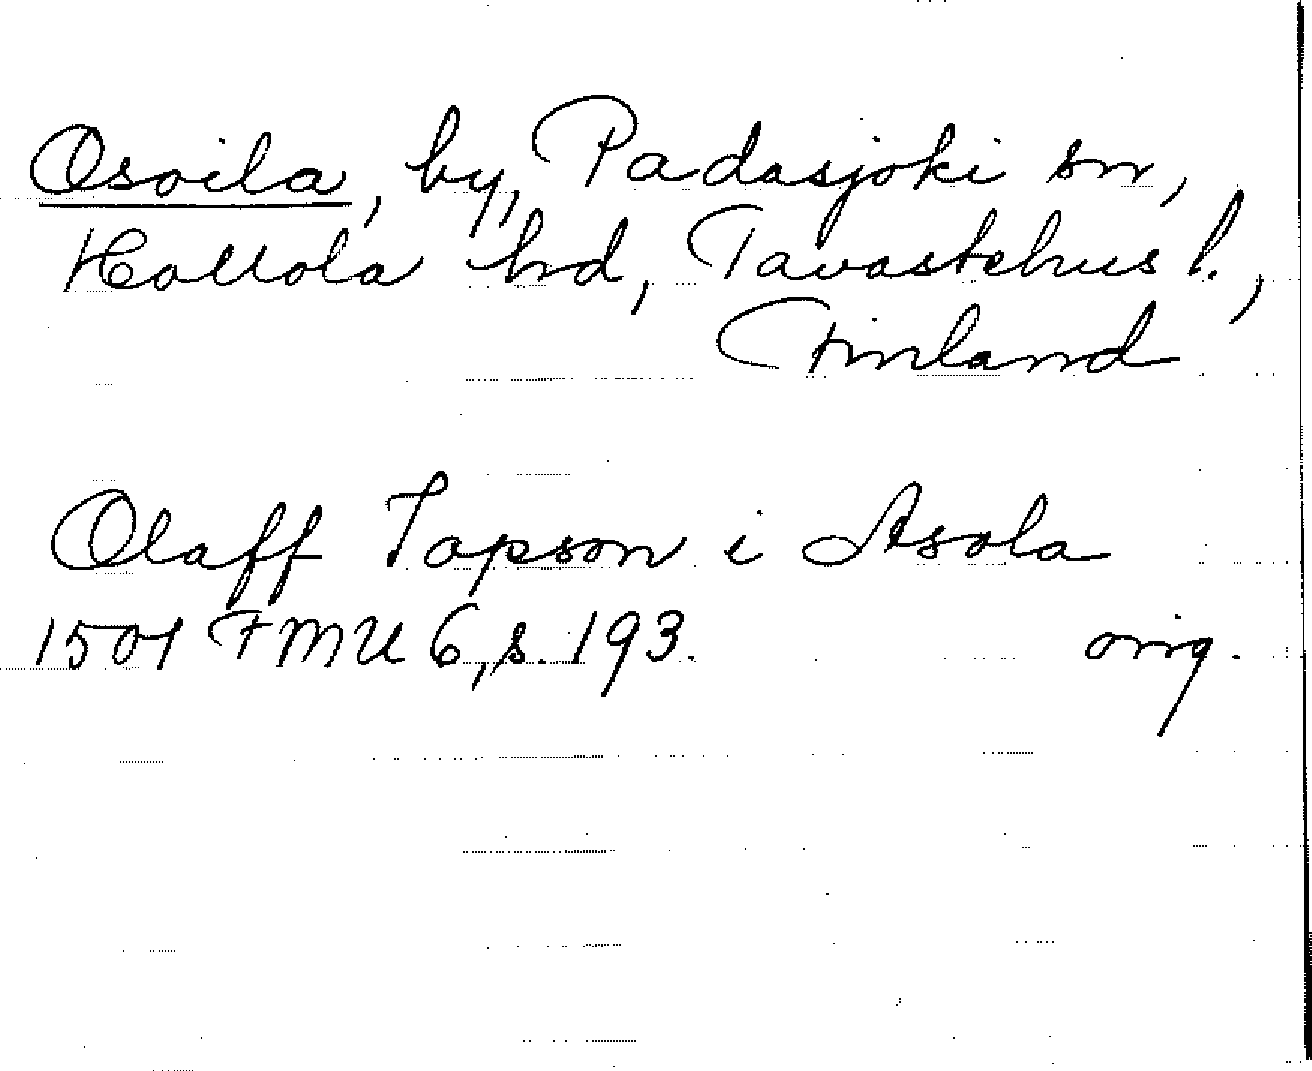 Osoila, by, Padasjoki sn,
Hollola hd, Tavastehus l.,
Finland
Olaff Tapson i Asola
1507 FMU 6, s. 193. orig.